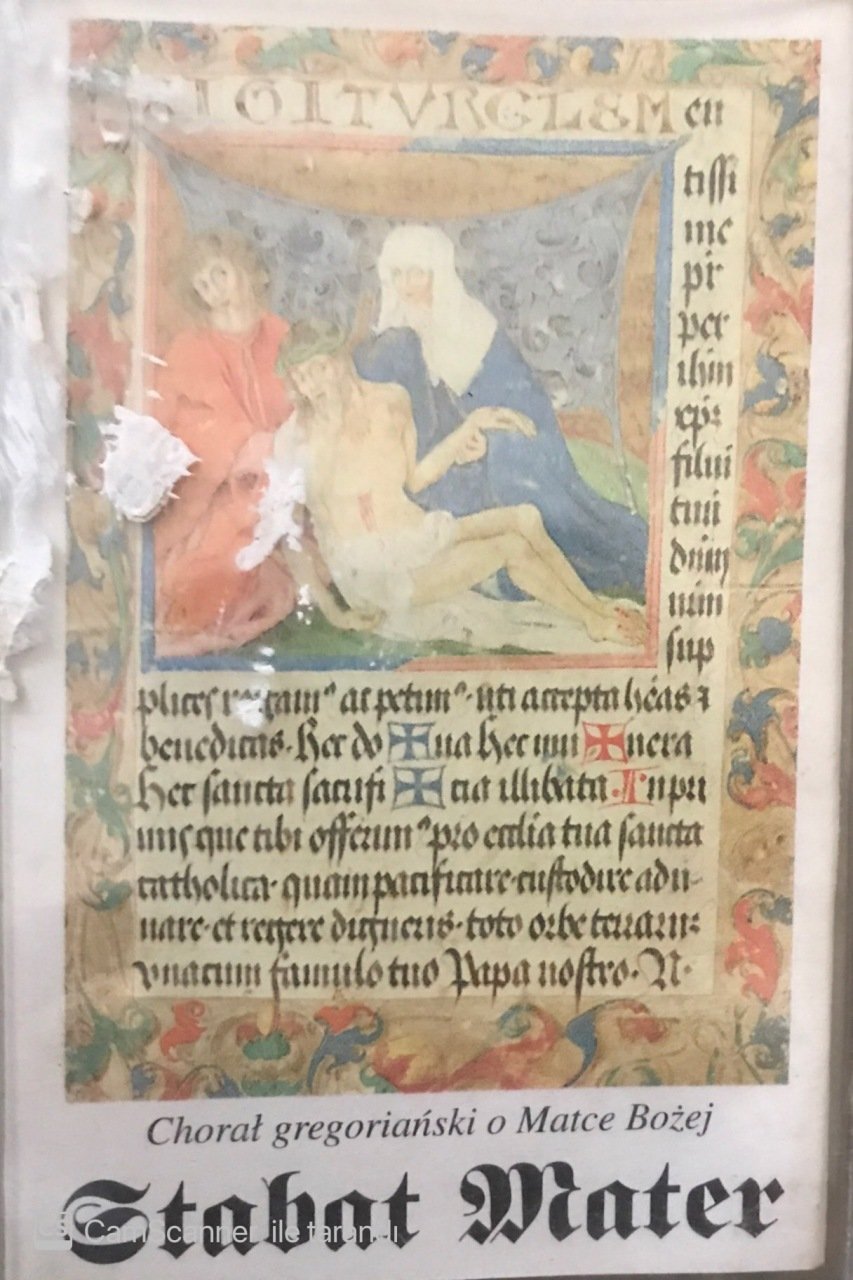 IGITVRCLEM en
tissi
me
pr
per
ihm
xpr
filiu
tuu
dnm
nrm
sup
plices rogam⁹ ac petim⁹ uti accepta heas ⁊
benedicas. Hec do ✠ na hec mu ✠ nera
Hec sancta sacrifi ✠ cia illibata. Inpri
mis que tibi offerim⁹ pro ecclia tua sancta
catholica quam pacificare custodire adu-
nare et regere digneris toto orbe terraru
vnacum famulo tuo Papa nostro. N.
Chorał gregoriański o Matce Bożej
Stabat Mater
CamScanner ile tarandı